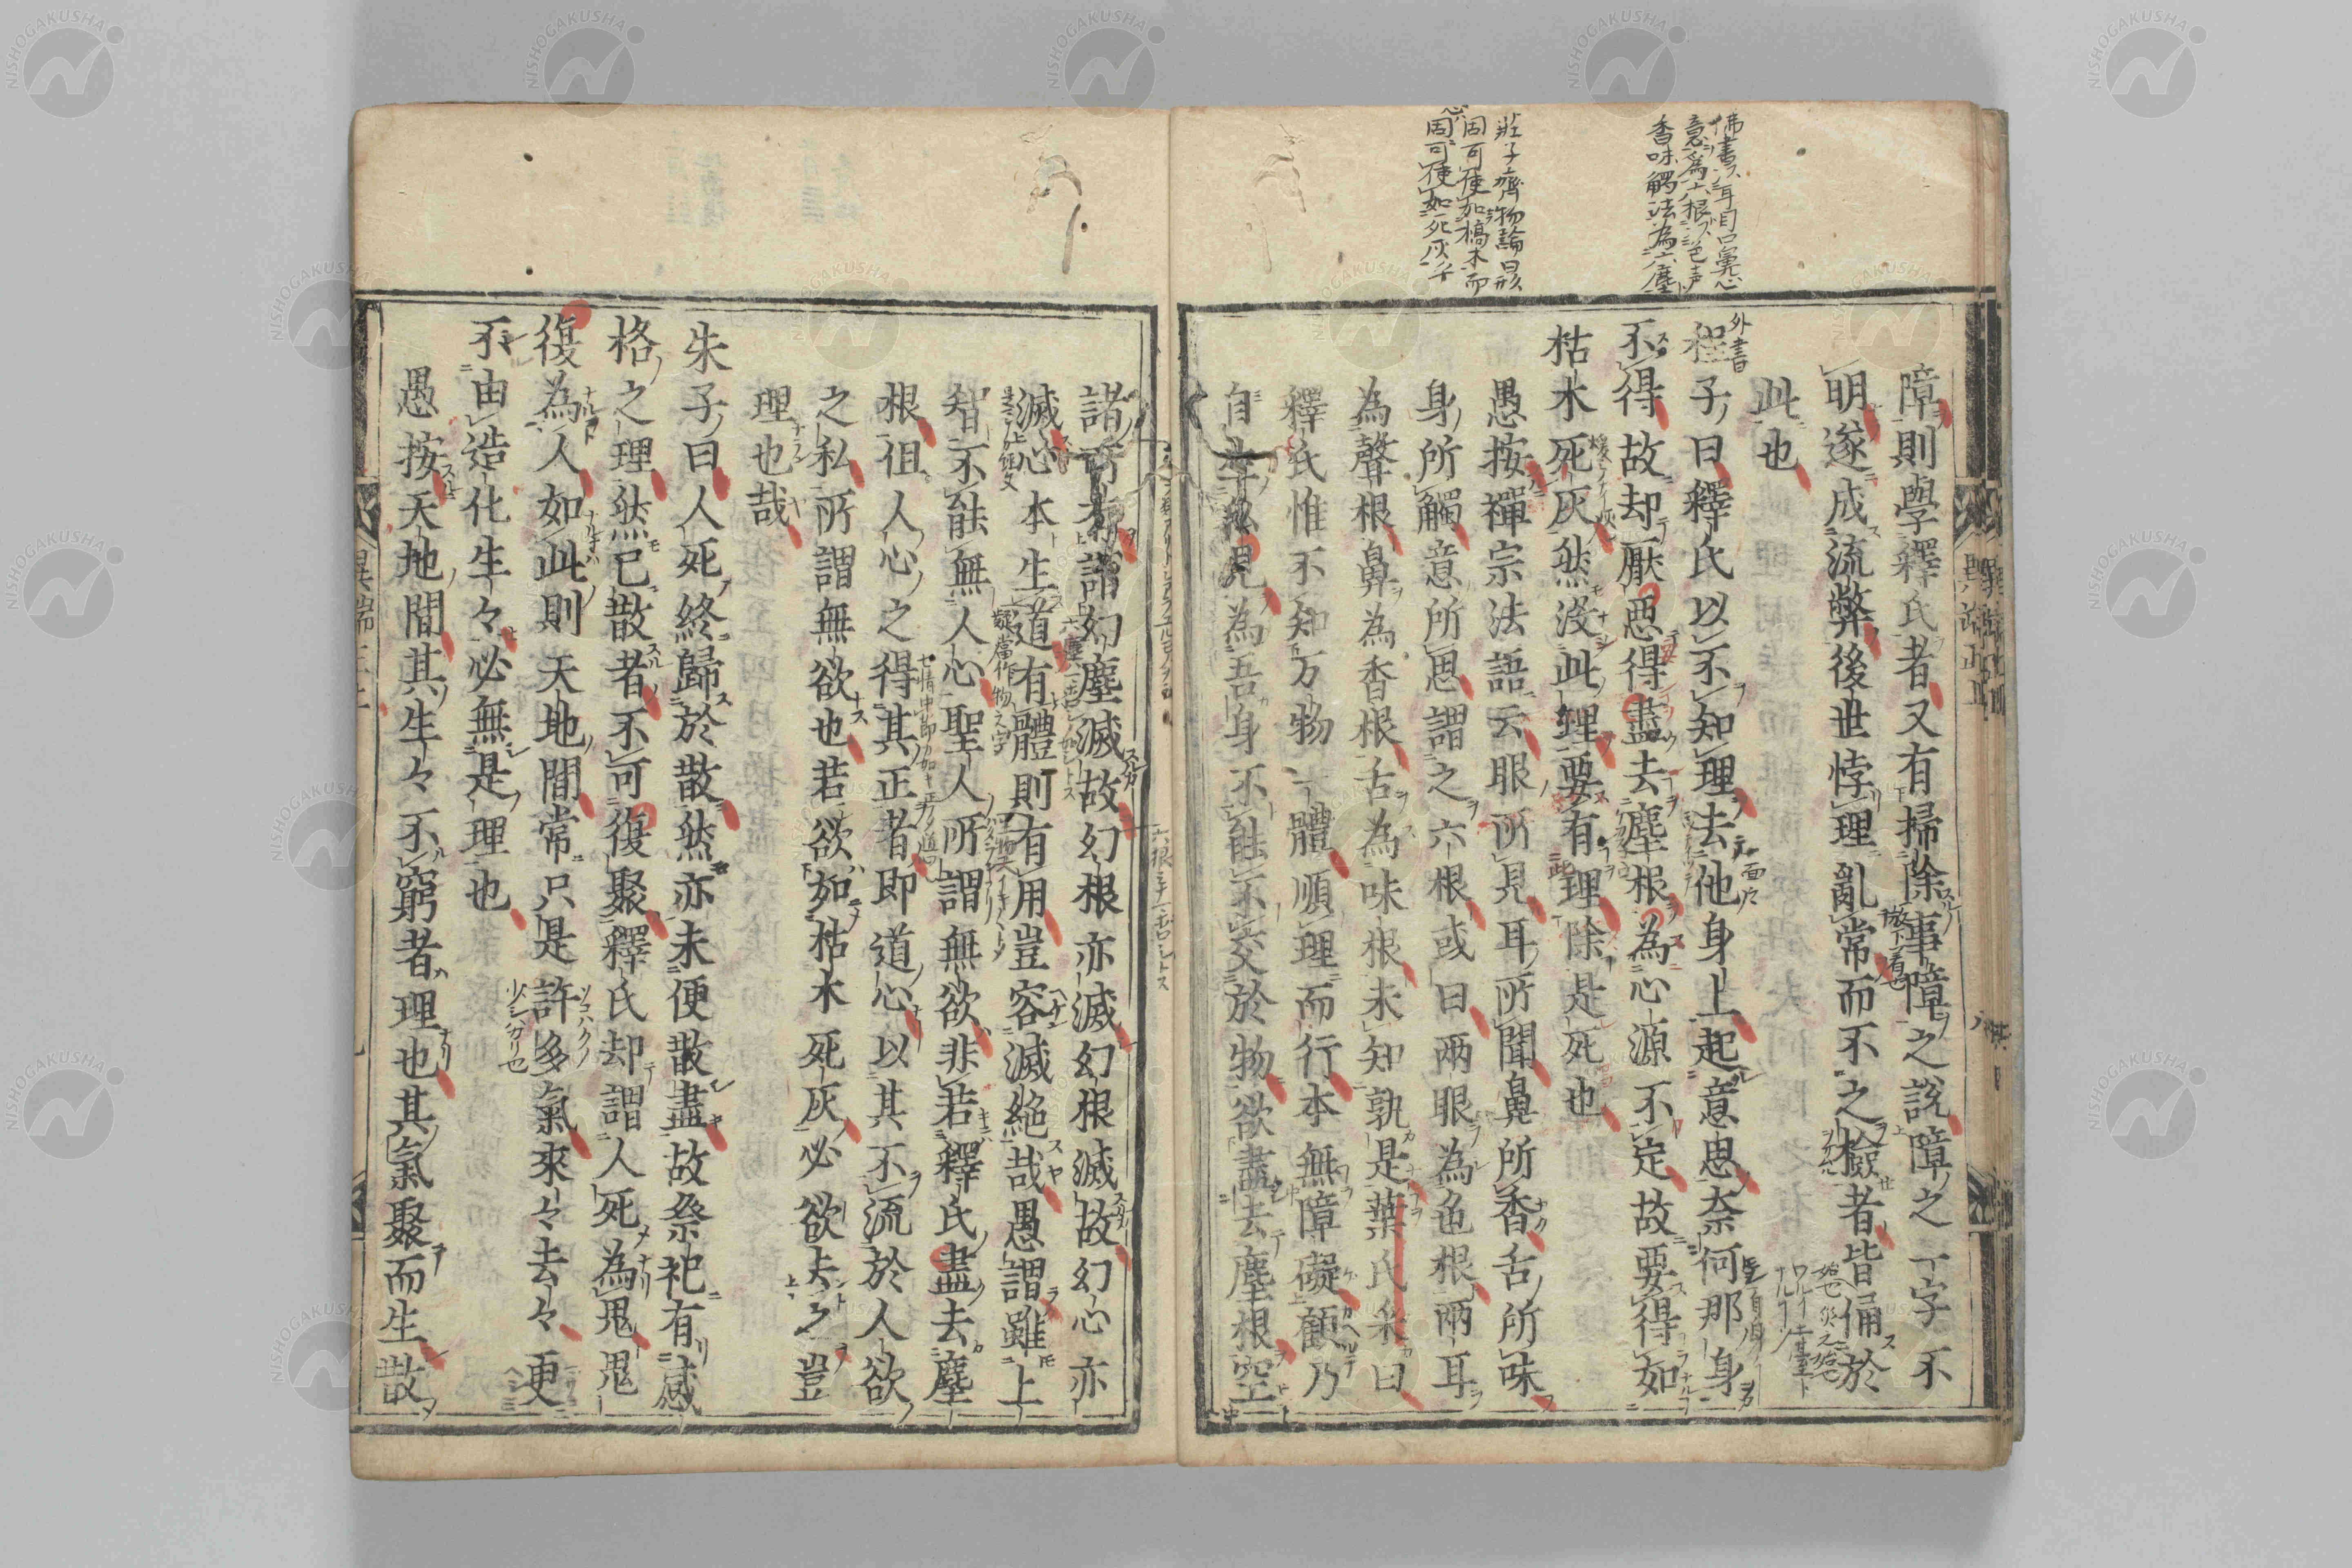 佛書以耳目口鼻心
意為六根以色声
香味觸法為六塵
莊子齊物論曰形
固可使如槁木而
心固可使如死灰乎
障則學釋氏者又有掃除事障之説障之一字不
明遂成流弊後世悖理亂常而不之檢者皆俑於
此也
外書
程子曰釋氏以不知理去他身上起意思奈何那身
不得故却厭惡得盡去塵根為心源不定故要得如
枯木死灰然没此理要有理除是死也
愚按禪宗法語云眼所見耳所聞鼻所香舌所味
身所觸意所思謂之六根或曰兩眼為色根兩耳
為聲根鼻為香根舌為味根未知孰是葉氏采曰
釋氏惟不知万物一體順理而行本無障礙顧乃
自生私見為吾身不能不交於物欲盡去塵根空
諸所有謂幻塵滅故幻根亦滅幻根滅故幻心亦
滅心本生道有體則有用豈容滅絶哉愚謂雖上
智不能無人心聖人所謂無欲非若釋氏盡去塵
疑當作物之字
根徂人心之得其正者即道心以其不流於人欲
之私所謂無欲也若欲如枯木死灰必欲去之豈
理也哉
朱子曰人死終歸於散然亦未便散盡故祭祀有感
格之理然已散者不可復聚釋氏却謂人死為鬼鬼
復為人如此則天地間常只是許多氣來々去々更
不由造化生々必無是理也
愚按天地間其生々不窮者理也其氣聚而生散